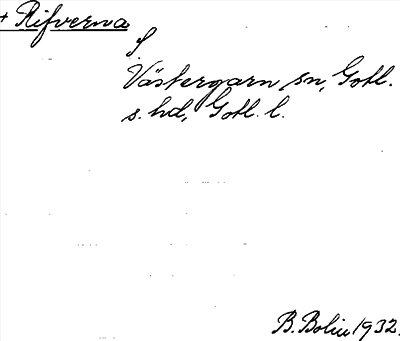 + Rifverna
S
Västergarn sn, Gotl.
s. hd, Gotl. l.
B. Bolin 1932.